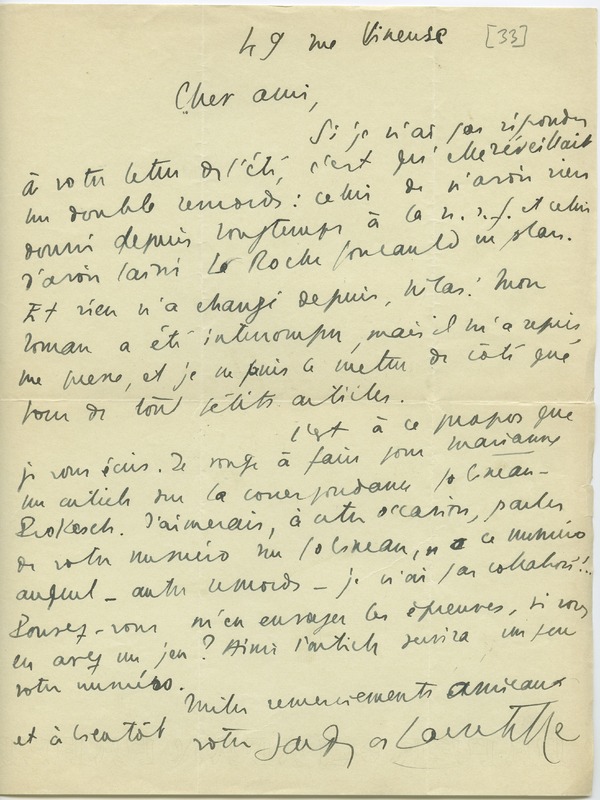 49 rue Vineuse [33]
Cher ami,
Si je n'ai pas répondu
à votre lettre de l'été, c'est qu'elle réveillait
un double remords : celui de n'avoir rien
donné depuis longtemps à la n.r.f. et celui
d'avoir laissé La Rochefoucauld en plan.
Et rien n'a changé depuis, hélas! Mon
roman a été interrompu, mais il m'a repris,
me presse, et je ne puis le mettre de côté que
pour de tout petits articles.
C'est à ce propos que
je vous écris. Je songe à faire pour Marianne
un article sur la correspondance Gobineau-
Prokesch. J'aimerais, à cette occasion, parler
de votre numéro sur Gobineau, ce numéro
auquel – autre remords – je n'ai pas collaboré!..
Pouvez-vous m'en envoyer les épreuves, si vous
en avez un jeu? Ainsi l'article servira un peu
votre numéro.
Mille remerciements amicaux
et à bientôt votre Jacques de Lacretelle